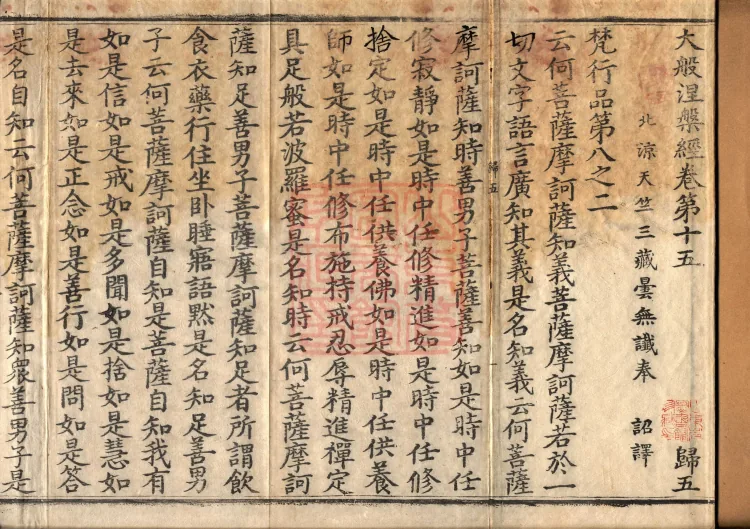 大般涅槃經卷第十五
歸五
北涼天竺三藏曇無讖奉 詔譯
梵行品第八之二
云何菩薩摩訶薩知義菩薩摩訶薩若於一
切文字語言廣知其義是名知義云何菩薩
摩訶薩知時善男子菩薩善知如是時中任
歸五
修寂靜如是時中任修精進如是時中任修
捨定如是時中任供養佛如是時中任供養
師如是時中任修布施持戒忍辱精進禪定
具足般若波羅蜜是名知時云何菩薩摩訶
薩知足善男子菩薩摩訶薩知足者所謂飲
食衣藥行住坐卧睡寤語默是名知足善男
子云何菩薩摩訶薩自知是菩薩自知我有
如是信如是戒如是多聞如是捨如是慧如
是去來如是正念如是善行如是問如是答
是名自知云何菩薩摩訶薩知眾善男子是